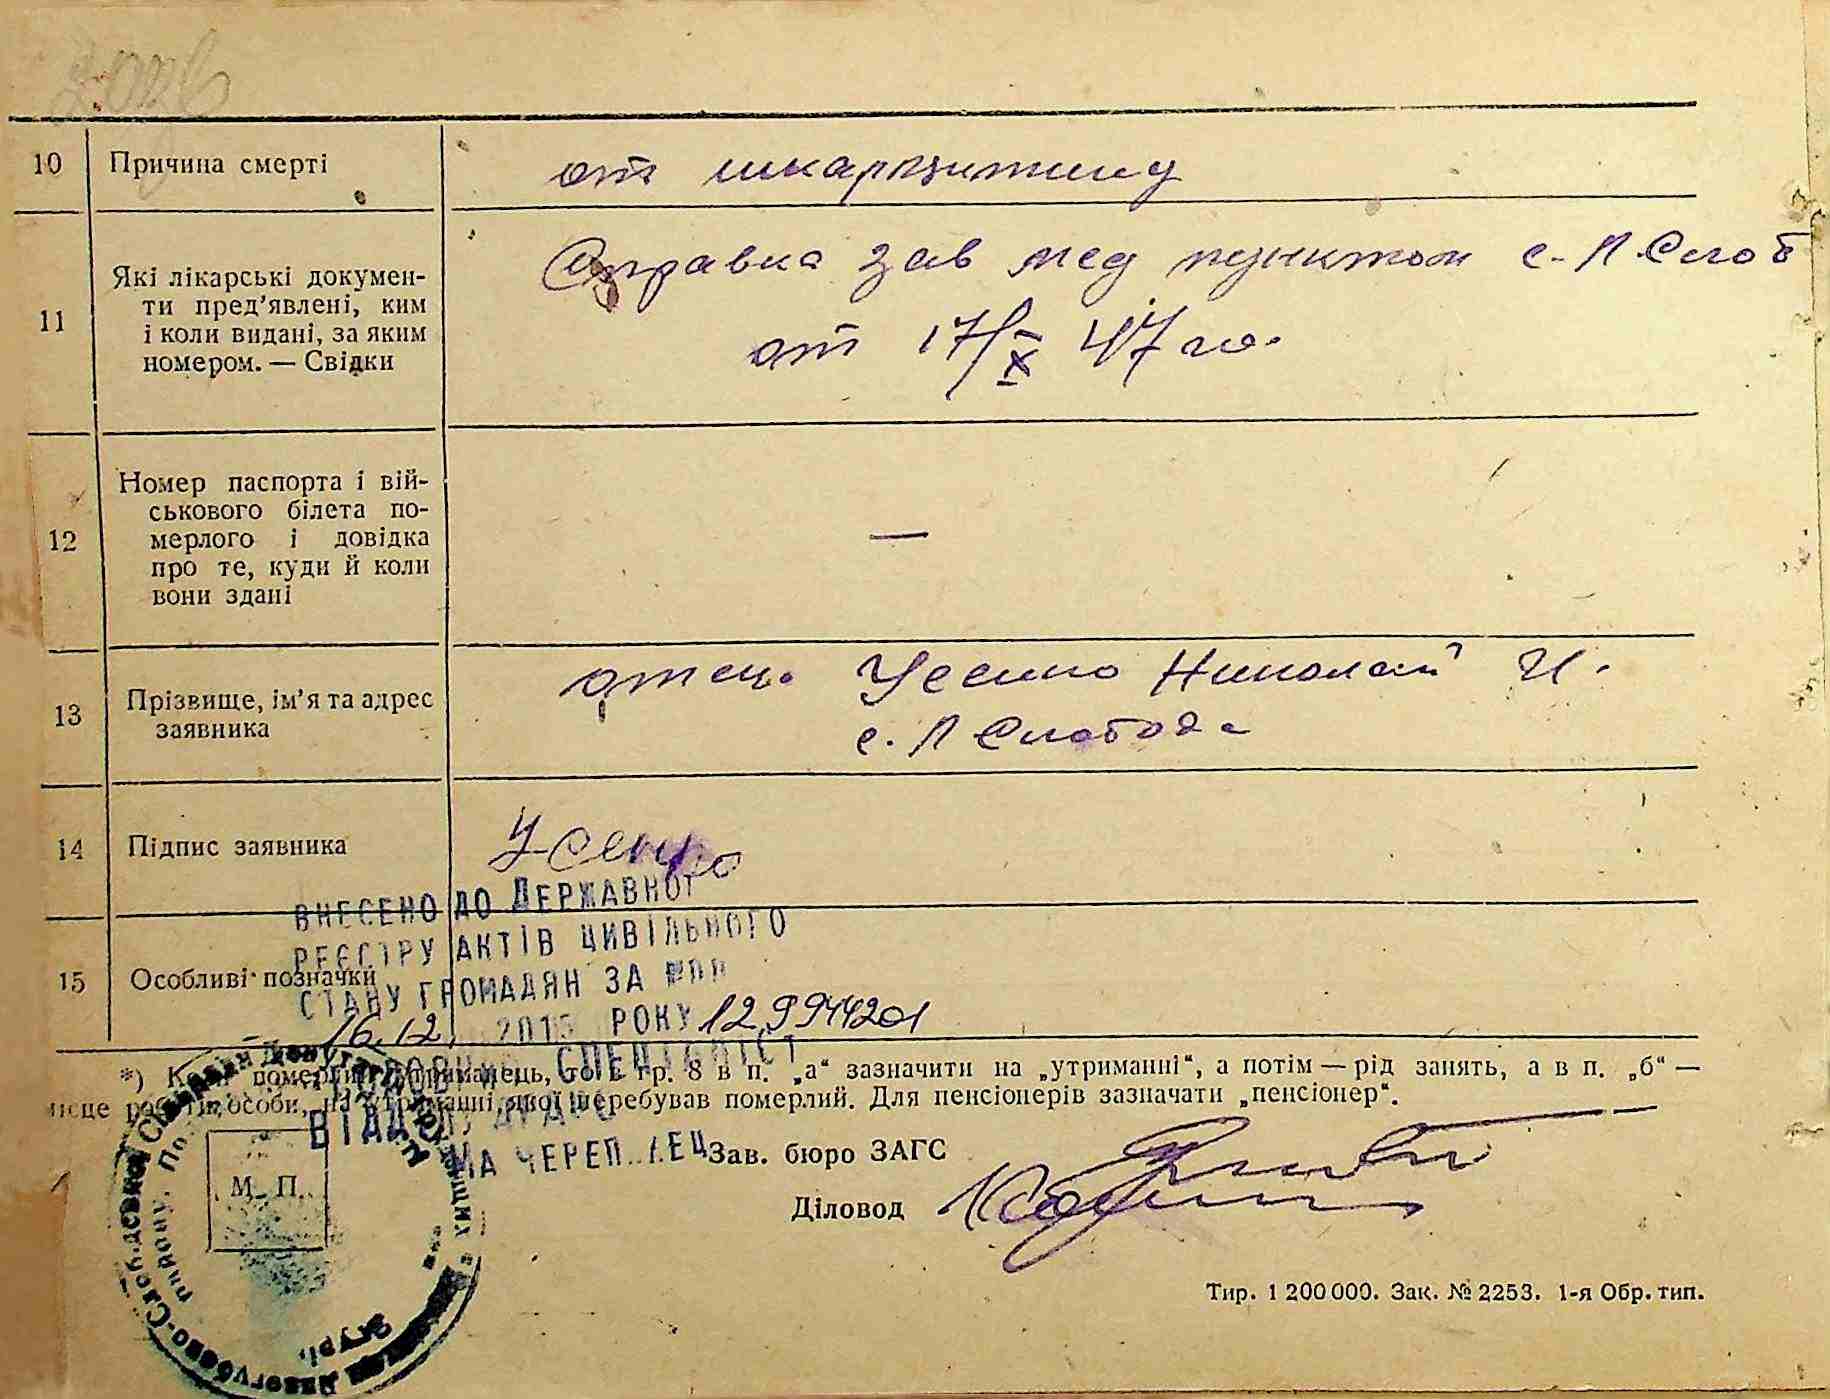 10 Причина смерті
от шкарлитину
11 Які лікарські докумен-
ти пред’явлені, ким
і коли видані, за яким
номером. — Свідки
Справка зав мед пунктом с. Л. Слоб
от 17/X 47 го.
12 Номер паспорта і вій-
ськового білета по-
мерлого і довідка
про те, куди й коли
вони здані
—
13 Прізвище, ім’я та адрес
заявника
отец. Усенко Николай И.
с. Л Слобода
14 Підпис заявника
Усенко
15 Особливі позначки
ВНЕСЕНО ДО ДЕРЖАВНОГ
РЕЄСТРУ АКТІВ ЦИВІЛЬНОГО
СТАНУ ГРОМАДЯН ЗА
16.12. 2015 РОКУ
СПЕЦІАЛІСТ
*) померлий то в гр. 8 в п. „а“ зазначити на „утриманні“, а потім — рід занять, а в п. „б“ —
місце роботи особи, на утриманні якої перебував померлий. Для пенсіонерів зазначати „пенсіонер“.
Зав. бюро ЗАГС
М. П.
Діловод
Тир. 1 200 000. Зак. № 2253. 1-я Обр. тип.